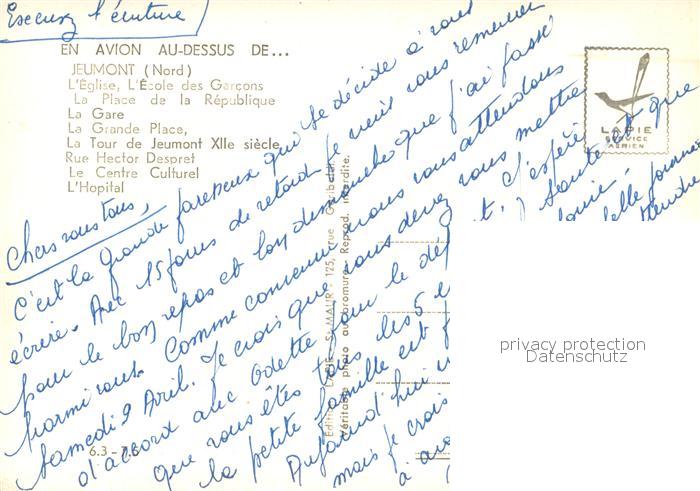 Excusez l'écriture
EN AVION AU-DESSUS DE...
JEUMONT (Nord)
L'Église, L'École des Garçons
La Place de la République
La Gare
La Grande Place,
La Tour de Jeumont XIIe siècle,
Rue Hector Despret
Le Centre Culturel
L'Hopital
LAPIE
SERVICE
AERIEN
Chers vous tous,
C'est la grande paresseuse qui se décide à vous
écrire. Avec 15 jours de retard je viens vous remercier
pour le bon repas et bon dimanche que j'ai passé
parmi vous. Comme convenu nous vous attendons
Samedi 9 Avril. Je crois que vous devez vous mettre
d'accord avec Odette pour le dé
t. J'espère
que vous êtes tous les 5 e
santé et que
la petite famille est
Aujourd'hui
belle journée
mais je crois
ttendre
à
Editions LAPIE St-MAUR - 125, rue
Véritable photo au bromure. Reprod. interdite.
6.3 - 7.6
privacy protection
Datenschutz